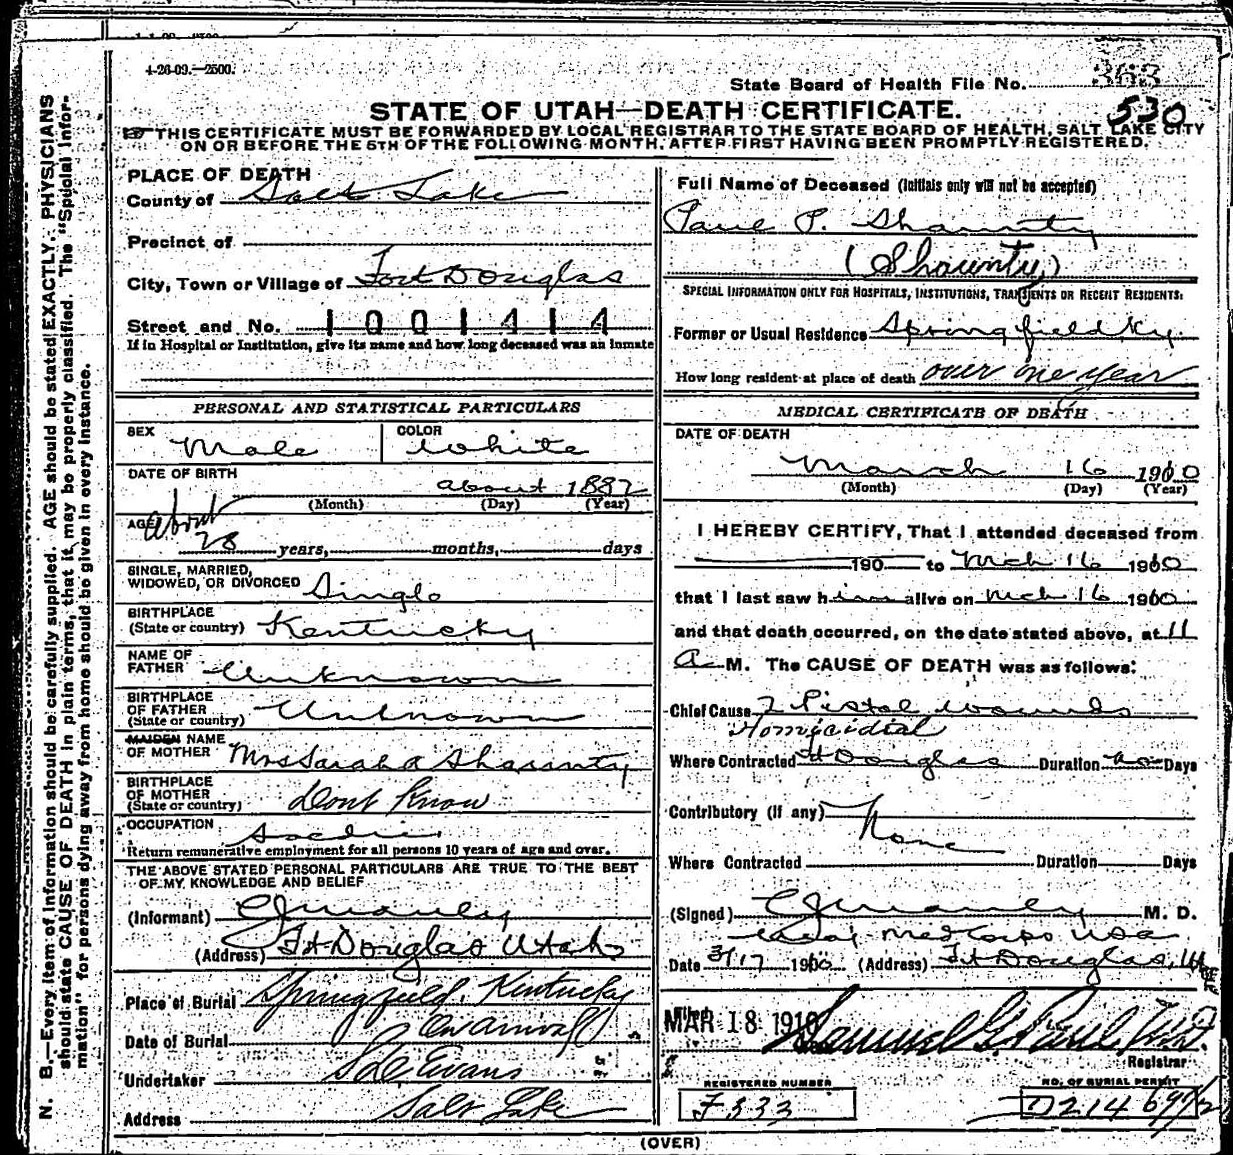 4-26-09.—2500.
State Board of Health File No. 363
530
STATE OF UTAH—DEATH CERTIFICATE.
☞THIS CERTIFICATE MUST BE FORWARDED BY LOCAL REGISTRAR TO THE STATE BOARD OF HEALTH, SALT LAKE CITY
ON OR BEFORE THE 5TH OF THE FOLLOWING MONTH, AFTER FIRST HAVING BEEN PROMPTLY REGISTERED.
N. B.—Every item of information should be carefully supplied. AGE should be stated EXACTLY. PHYSICIANS
should state CAUSE OF DEATH in plain terms, that it may be properly classified. The "Special Infor-
mation" for persons dying away from home should be given in every instance.
PLACE OF DEATH
County of Salt Lake
Precinct of
City, Town or Village of Fort Douglas
Street and No. 1001414
If in Hospital or Institution, give its name and how long deceased was an inmate
PERSONAL AND STATISTICAL PARTICULARS
SEX Male COLOR White
DATE OF BIRTH
about 1882
(Month) (Day) (Year)
AGE About
28 years, months, days
SINGLE, MARRIED,
WIDOWED, OR DIVORCED Single
BIRTHPLACE
(State or country) Kentucky
NAME OF
FATHER Unknown
BIRTHPLACE
OF FATHER
(State or country) Unknown
MAIDEN NAME
OF MOTHER Mrs Sarah A Shaunty
BIRTHPLACE
OF MOTHER
(State or country) Dont Know
OCCUPATION Soldier
Return remunerative employment for all persons 10 years of age and over.
THE ABOVE STATED PERSONAL PARTICULARS ARE TRUE TO THE BEST
OF MY KNOWLEDGE AND BELIEF
(Informant) CJManley
(Address) Ft Douglas Utah
Place of Burial Springfield, Kentucky
Date of Burial On arrival
Undertaker Evans
Address Salt Lake
Full Name of Deceased (Initials only will not be accepted)
Paul P. Shaunty
(Shaunty)
SPECIAL INFORMATION ONLY FOR HOSPITALS, INSTITUTIONS, TRANSIENTS OR RECENT RESIDENTS:
Former or Usual Residence Springfield Ky.
How long resident at place of death over one year
MEDICAL CERTIFICATE OF DEATH
DATE OF DEATH
March 16 1910
(Month) (Day) (Year)
I HEREBY CERTIFY, That I attended deceased from
190 to Mch 16 1910
that I last saw him alive on Mch 16 1910
and that death occurred, on the date stated above, at 11
A M. The CAUSE OF DEATH was as follows:
Chief Cause 2 Pistol wounds
Homicidial
Where Contracted Ft Douglas Duration no Days
Contributory (if any)
None
Where Contracted Duration Days
(Signed) CJManley M. D.
Med Corps USA
Date 3/17 1910 (Address) Ft Douglas, Utah
Filed
MAR 18 1910 Samuel G. Paul, M.D.
Registrar
REGISTERED NUMBER
F333
NO. OF BURIAL PERMIT
D21469
(OVER)